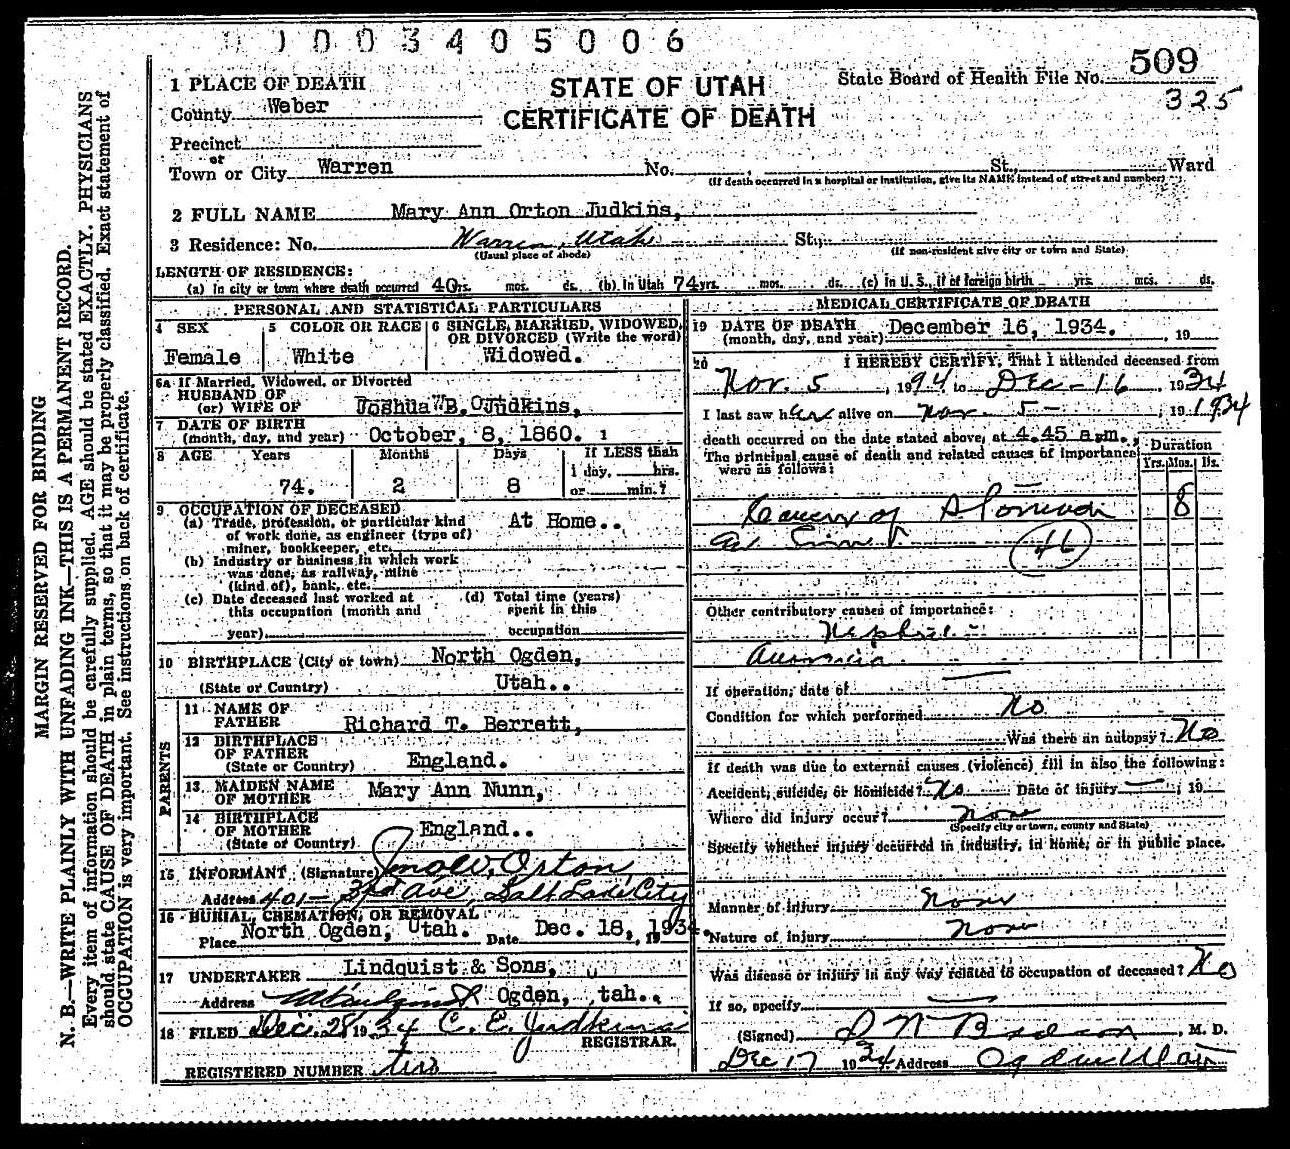 0003405006
STATE OF UTAH
CERTIFICATE OF DEATH
State Board of Health File No. 509
325
1 PLACE OF DEATH
County Weber
Precinct
or
Town or City Warren No. , St., Ward
(If death occurred in a hospital or institution, give its NAME instead of street and number)
2 FULL NAME Mary Ann Orton Judkins,
3 Residence: No. Warren, Utah St.,
(Usual place of abode) (If non-resident give city or town and State)
LENGTH OF RESIDENCE:
(a) In city or town where death occurred 40 yrs. mos. ds. (b) In Utah 74 yrs. mos. ds. (c) In U. S., if of foreign birth yrs. mos. ds.
PERSONAL AND STATISTICAL PARTICULARS
4 SEX 5 COLOR OR RACE 6 SINGLE, MARRIED, WIDOWED, OR DIVORCED (Write the word)
Female White Widowed.
6a If Married, Widowed, or Divorced
HUSBAND OF
(or) WIFE OF Joshua B. Judkins,
7 DATE OF BIRTH
(month, day, and year) October, 8, 1860.
8 AGE Years Months Days If LESS than
1 day, hrs.
74. 2 8 or min.?
9 OCCUPATION OF DECEASED
(a) Trade, profession, or particular kind of work done, as engineer (type of) miner, bookkeeper, etc. At Home..
(b) Industry or business in which work was done, as railway, mine (kind of), bank, etc.
(c) Date deceased last worked at this occupation (month and year)
(d) Total time (years) spent in this occupation
10 BIRTHPLACE (City or town) North Ogden,
(State or Country) Utah..
PARENTS
11 NAME OF FATHER Richard T. Berrett,
12 BIRTHPLACE OF FATHER (State or Country) England.
13 MAIDEN NAME OF MOTHER Mary Ann Nunn,
14 BIRTHPLACE OF MOTHER (State or Country) England..
15 INFORMANT (Signature) Jno W. Orton,
Address 401- 3rd Ave, Salt Lake City
16 BURIAL, CREMATION, OR REMOVAL
Place North Ogden, Utah. Date Dec. 18, 1934.
17 UNDERTAKER Lindquist & Sons,
Address Ogden, tah..
18 FILED Dec. 28 1934 C. E. Judkins
REGISTRAR.
REGISTERED NUMBER two
MEDICAL CERTIFICATE OF DEATH
19 DATE OF DEATH
(month, day, and year) December 16, 1934. , 19
20 I HEREBY CERTIFY, That I attended deceased from
Nov. 5 , 1994 to Dec - 16 , 1934
I last saw her alive on Nov. 5 - , 19 1934
death occurred on the date stated above, at 4.45 a m.
The principal cause of death and related causes of importance were as follows:
Duration
Yrs. Mos. Ds.
Cancer of Stomach 8
46
Other contributory causes of importance:
If operation, date of
Condition for which performed No
Was there an autopsy? No
If death was due to external causes (violence) fill in also the following:
Accident, suicide, or homicide? No Date of injury — , 19
Where did injury occur? None
(Specify city or town, county and State)
Specify whether injury occurred in industry, in home, or in public place.
Manner of injury None
Nature of injury None
Was disease or injury in any way related to occupation of deceased? No
If so, specify —
(Signed) , M. D.
Dec 17 1934 Address Ogden Utah
MARGIN RESERVED FOR BINDING
N. B.—WRITE PLAINLY WITH UNFADING INK—THIS IS A PERMANENT RECORD.
Every item of information should be carefully supplied. AGE should be stated EXACTLY. PHYSICIANS
should state CAUSE OF DEATH in plain terms, so that it may be properly classified. Exact statement of
OCCUPATION is very important. See instructions on back of certificate.